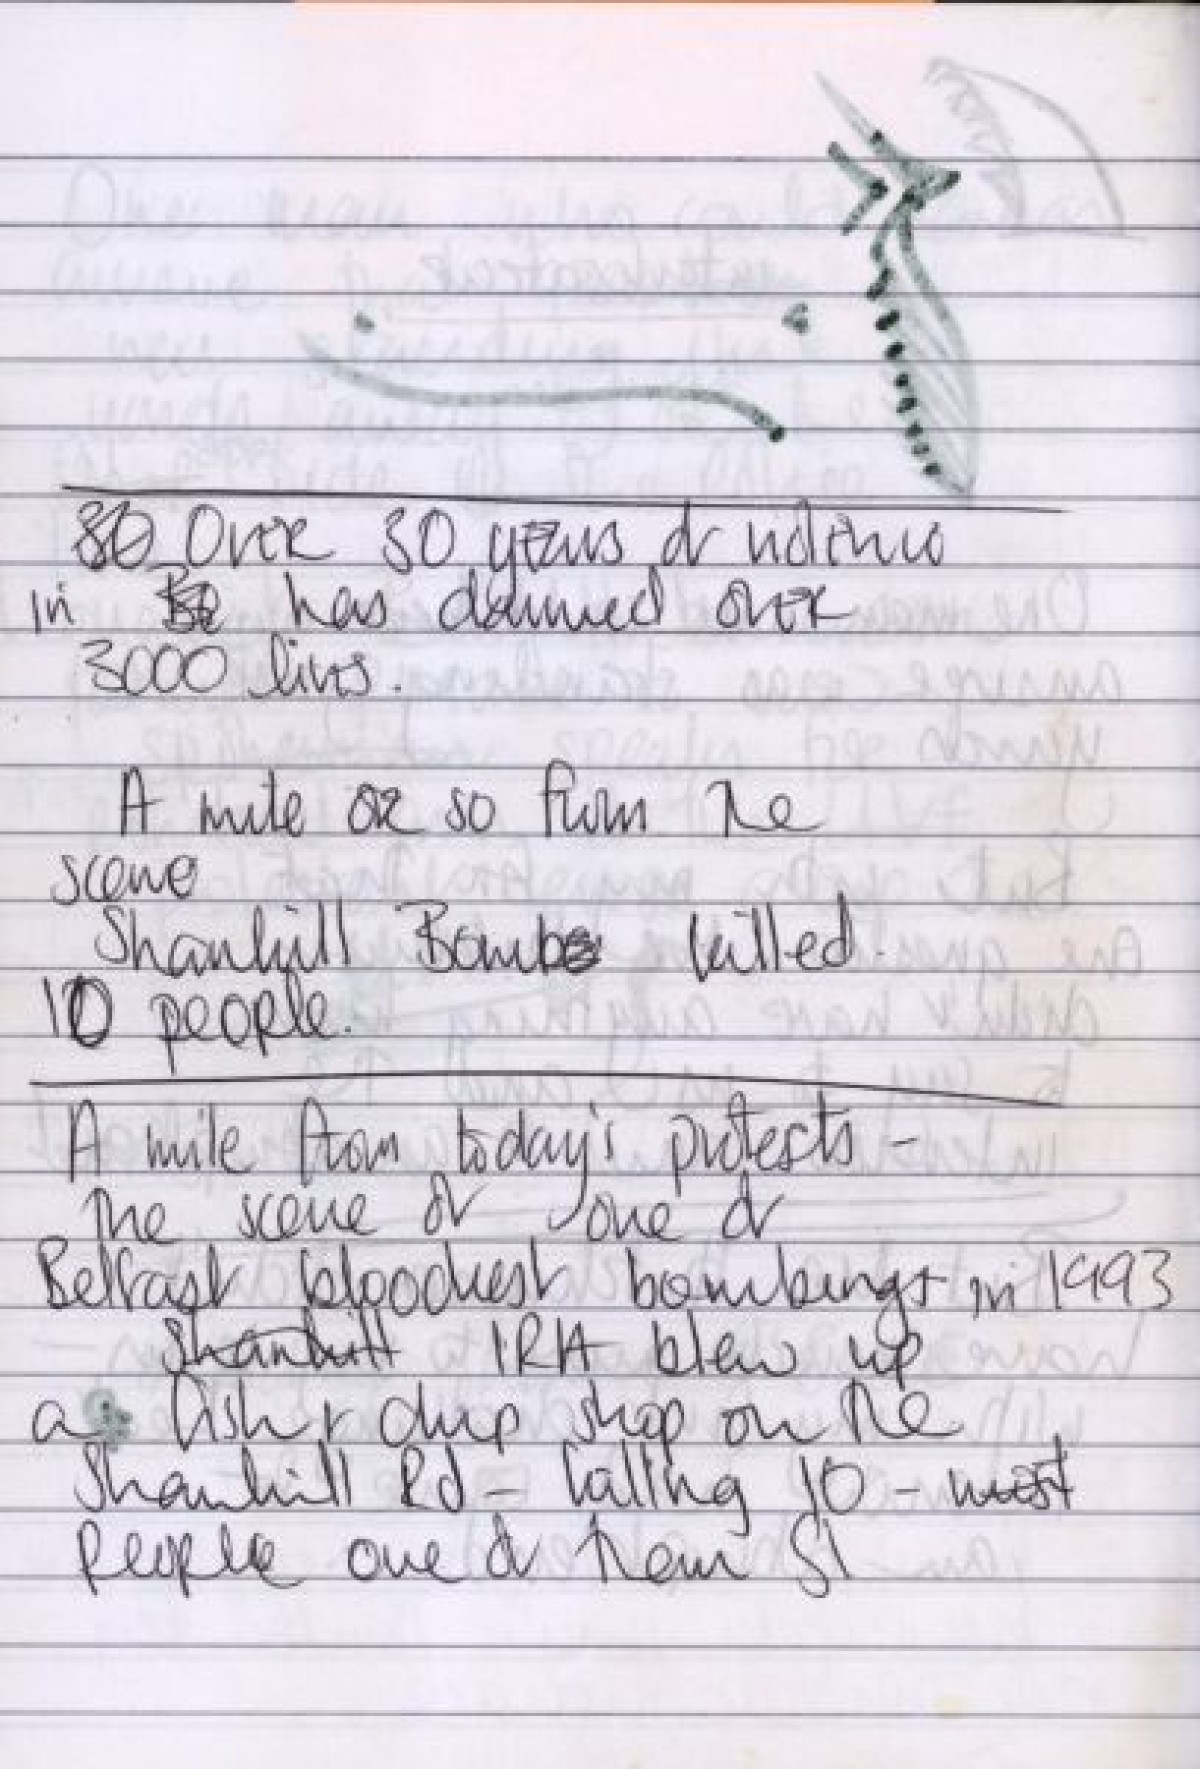 Over 30 years of violence
in has claimed over
3000 lives.
A mile or so from the
scene
Shankill Bomb killed.
10 people.
A mile from today's protests -
the scene of one of
Belfast bloodiest bombings in 1993
Shankill IRA blew up
a fish + chip shop on the
Shankill Rd - killing 10 - most
people one of them